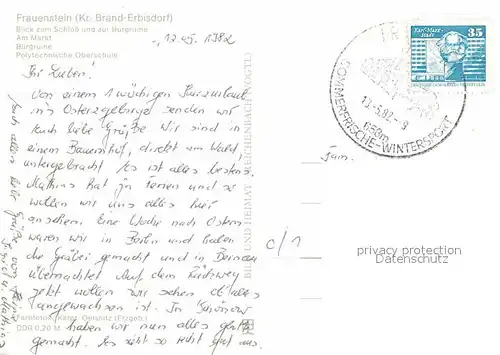 Frauenstein (Kr. Brand-Erbisdorf)
Blick zum Schloß und zur Burgruine
Am Markt
Burgruine
Polytechnische Oberschule
12.05.1982
Ihr Lieben!
Von einem 1 wöchigen Kurzurlaub
ins Osterzgebirge senden wir
Euch liebe Grüße. Wir sind in
einem Bauernhof, direkt am Wald
untergebracht. Es ist alles bestens.
Mathias hat ja Ferien und so
wollen wir uns alles hier
ansehen. Eine Woche nach Ostern
waren wir in Berlin und haben
die Gräber gemacht und in Bernau
übernachtet. Auf dem Rückweg
jetzt wollen wir sehen ob alles
angewachsen ist. In Schönow
haben wir nun alles
gemacht. Es sieht so recht gut aus.
Euch allen liebe Grüße von
u. Mathias
BILD UND HEIMAT REICHENBACH (VOGTL)
Geisnitz (Erzgeb.)
DDR 0,20 M
Karl-Marx-
Stadt
35
13.-5.82-9
658m
SOMMERFRISCHE-WINTERSPORT
Fam.
c/1
privacy protection
Datenschutz